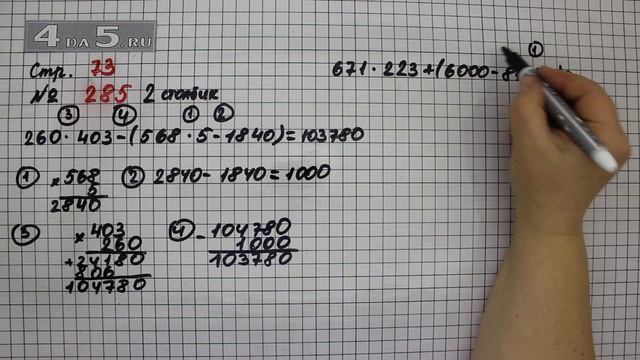 4DA5.RU
Стр. 73
№ 285 2 столбик
③ ④ ① ②
260 · 403 - (568 · 5 - 1840) = 103780
① × 568
5
2840
② 2840 - 1840 = 1000
③ × 403
260
+ 24180
806
104780
④ - 104780
1000
103780
①
671 · 223 + (6000 - 8